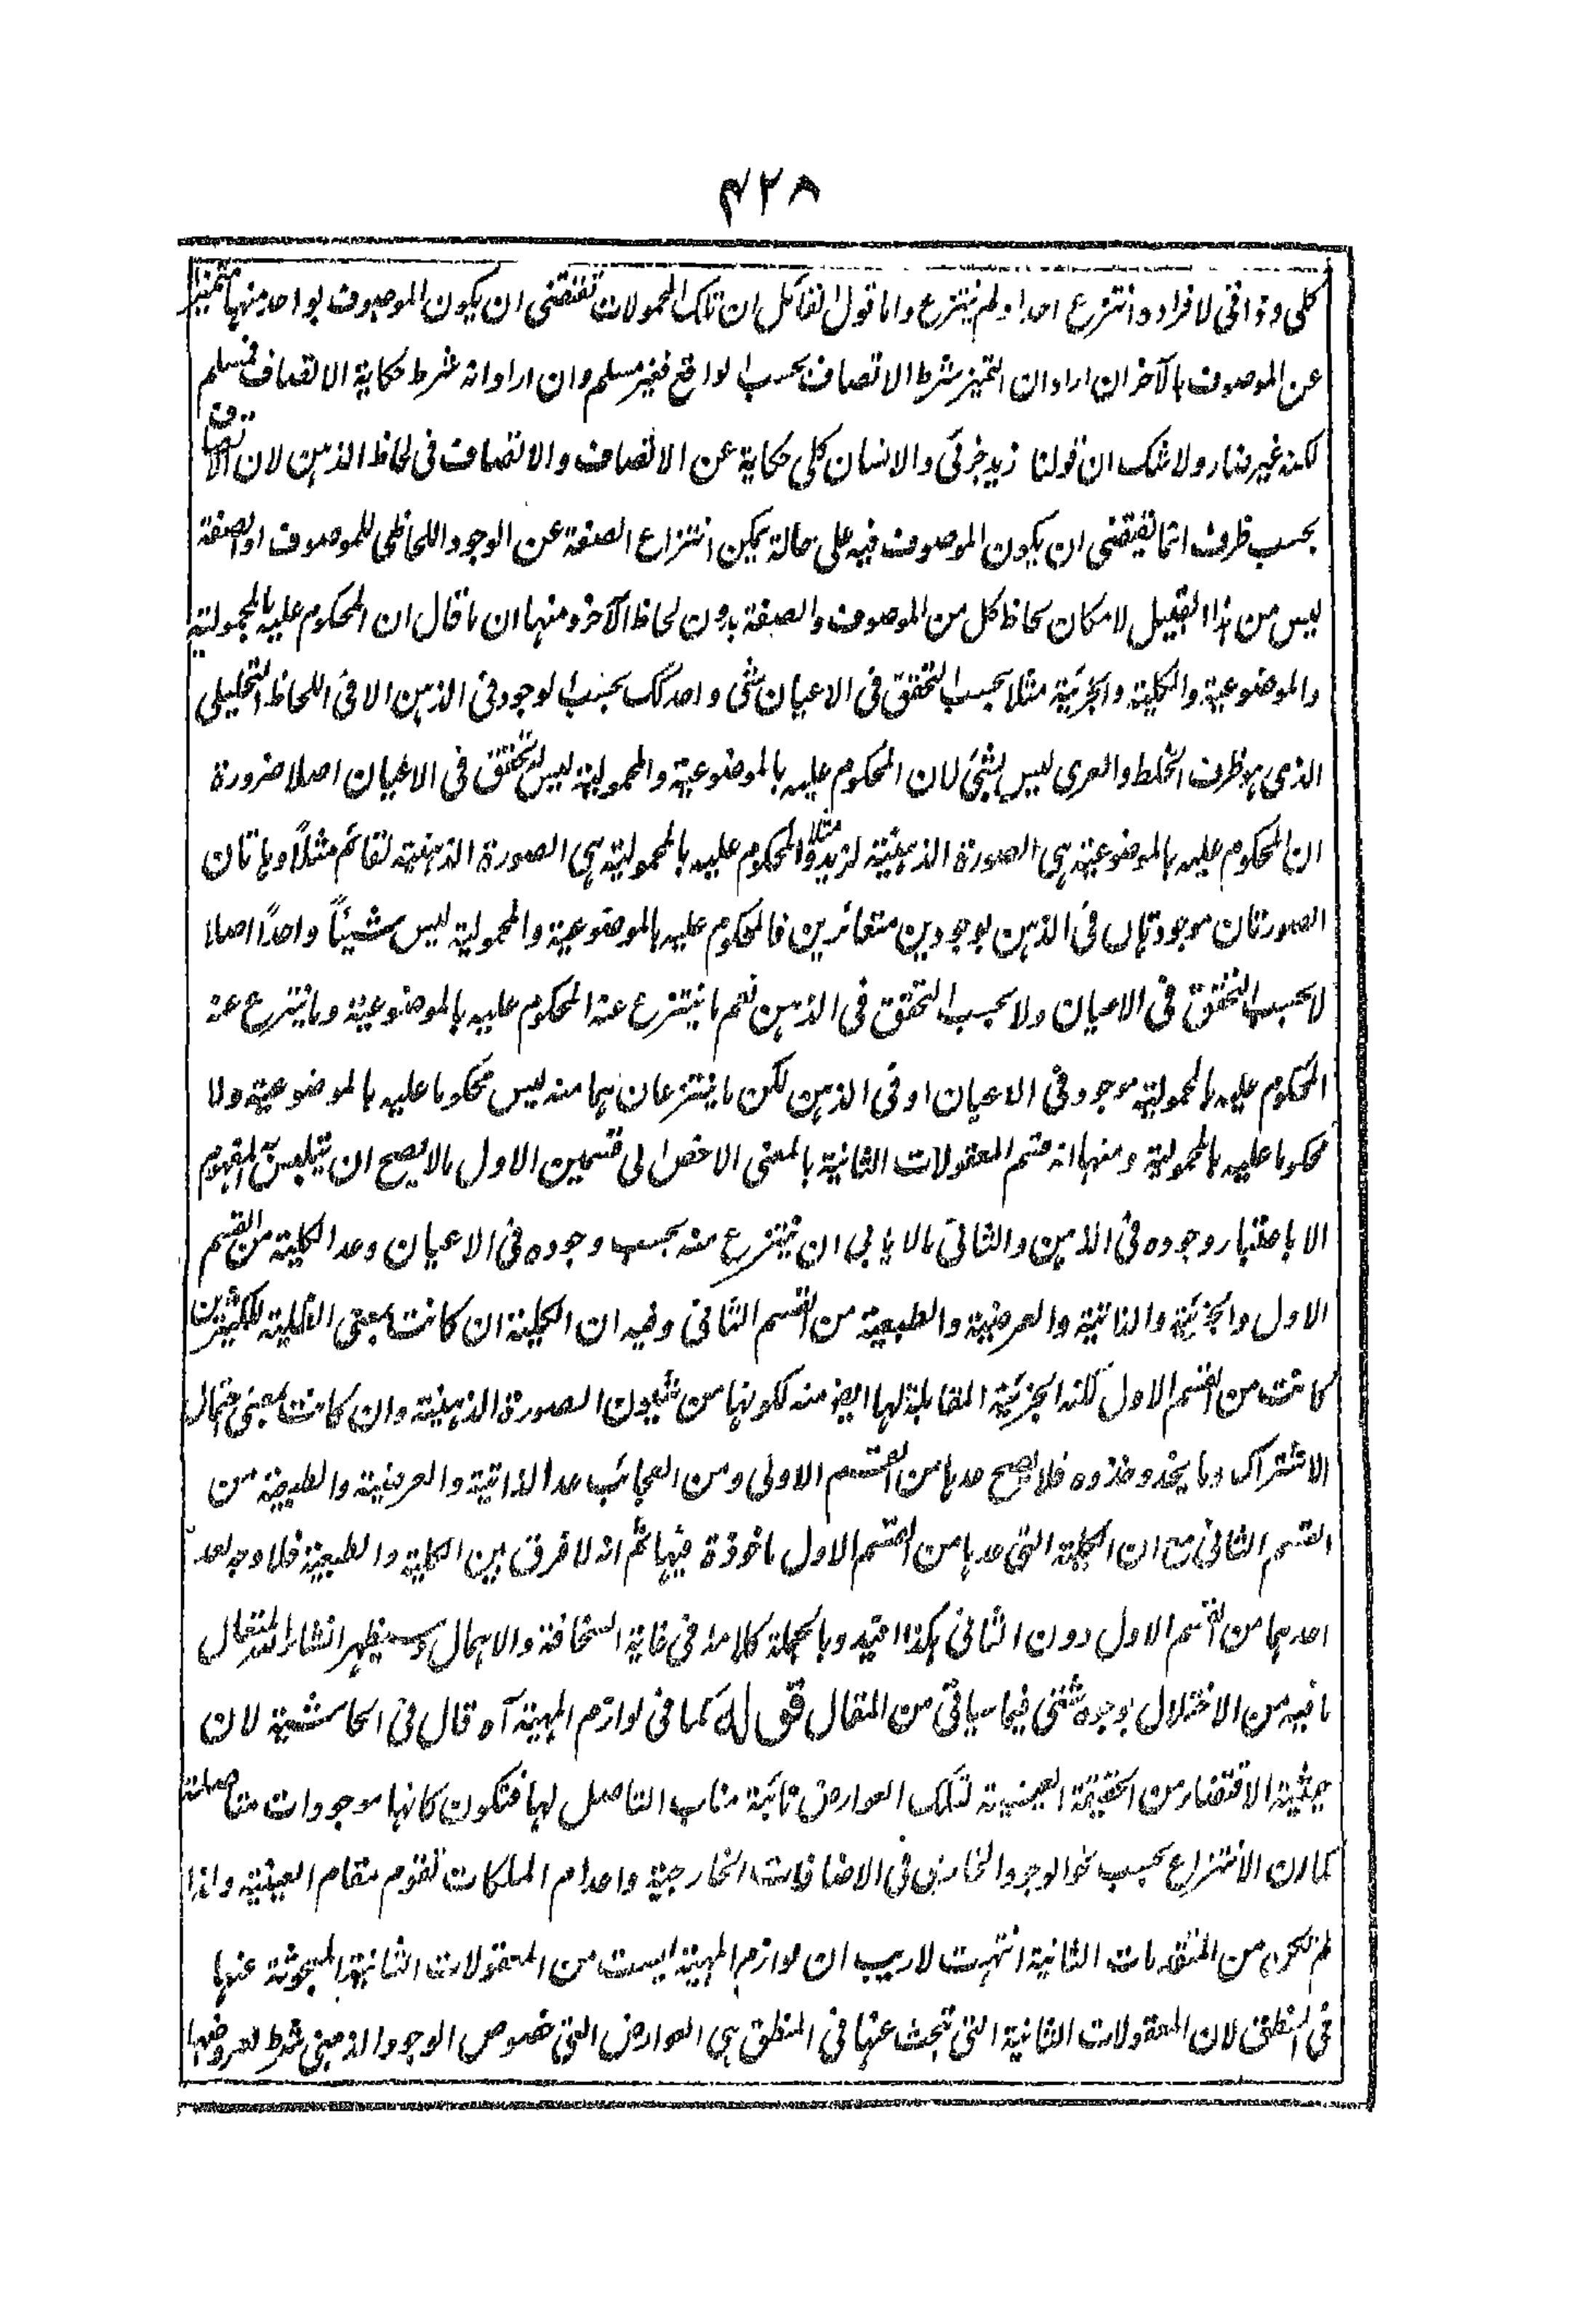 ۴۲۸
كلى وذاتى لافراده انتزع احد او لم ينتزع واما قول القائل ان تلك المحمولات تقتضى ان يكون الموصوف بواحد منها متميز
عن الموصوف بالآخر ان اراد ان التميز شرط الاتصاف بحسب الواقع فغير مسلم وان اراد انه شرط حكاية الاتصاف فمسلم
لكنه غير ضار ولا شك ان قولنا زيد جزئى والانسان كلى حكاية عن الاتصاف والاتصاف فى لحاظ الذهن لان الاتصاف
بحسب ظرف انما يقتضى ان يكون الموصوف فيه على حالة يمكن انتزاع الصفة عن الوجود اللحاظى للموصوف او الصفة
ليس من هذا القبيل لامكان لحاظ كل من الموصوف والصفة بدون لحاظ الآخر ومنها ان ما قال ان المحكوم عليه بالمحمولية
والموضوعية والكلية والجزئية مثلا بحسب التحقق فى الاعيان شئ واحد كك بحسب الوجود فى الذهن الا فى اللحاظ التحليلى
الذى هو ظرف الخلط والعرى ليس بشئ لان المحكوم عليه بالموضوعية والمحمولية ليس بمتحقق فى الاعيان اصلا ضرورة
ان المحكوم عليه بالموضوعية هى الصورة الذهنية لزيد مثلا والمحكوم عليه بالمحمولية هى الصورة الذهنية لقائم مثلاً وهاتان
الصورتان موجودتان فى الذهن بوجودين متغائرين فالمحكوم عليه بالموضوعية والمحمولية ليس شيئاً واحداً اصلا
لا بحسب التحقق فى الاعيان ولا بحسب التحقق فى الذهن نعم ما ينتزع عنه المحكوم عليه بالموضوعية وما ينتزع عنه
المحكوم عليه بالمحمولية موجود فى الاعيان او فى الذهن لكن ما ينتزعان هما منه ليس محكوما عليه بالموضوعية ولا
محكوما عليه بالمحمولية ومنها انه قسم المعقولات الثانية بالمعنى الاخص الى قسمين الاول ما لا يصح ان يتلبس به المفهوم
الا باعتبار وجوده فى الذهن والثانى ما لا يابى ان ينتزع منه بحسب وجوده فى الاعيان وعد الكلية من القسم
الاول والجزئية والذاتية والعرضية والطبعية من القسم الثانى وفيه ان الكلية ان كانت بمعنى الظلية للكثيرين
كانت من القسم الاول لكنه الجزئية المقابلة لها ايضا منه لكونها من شيون الصورة الذهنية وان كانت بمعنى احتمال
الاشتراك وما يحذو حذوه فلا يصح عدها من القسم الاولى ومن العجائب عد الذاتية والعرضية والطبعية من
القسم الثانى مع ان الكلية التى عدها من القسم الاول ماخوذة فيها ثم انه لا فرق بين الكلية والطبعية فلا وجه لعد
احدهما من القسم الاول دون الثانى هكذا قيد وبالجملة كلامه فى غاية السخافة والاهمال وسيظهر انشاء الله المتعال
ما فيه من الاختلال بوجوه شتى فيما سياتى من المقال قوله كما فى لوازم المهية آه قال فى الحاشية لان
حيثية الاقتضاء من الحقيقة العينية لتلك العوارض نائبة مناب التاصل لها فتكون كانها موجودات متاصلة
كما ان الانتزاع بحسب نحو الوجود الخارجى فى الاضافيات الخارجية واعدام الملكات تقوم مقام العينية ولذا
لم تكن من المعقولات الثانية انتهت لا ريب ان لوازم المهية ليست من المعقولات الثانية المبحوثة عنها
فى المنطق لان المعقولات الثانية التى تبحث عنها فى المنطق هى العوارض التى خصوص الوجود الذهنى شرط لعروضها